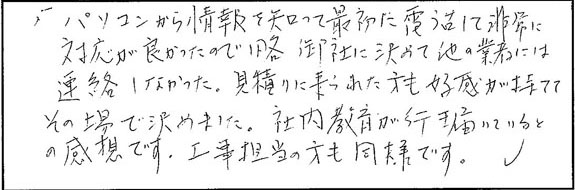 パソコンから情報を知って最初に電話して非常に
対応が良かったので1略 御社に決めて他の業者には
連絡しなかった。見積りに来られた方も好感が持てて
その場で決めました。社内教育が行き届いていると
の感想です。工事担当の方も同様です。